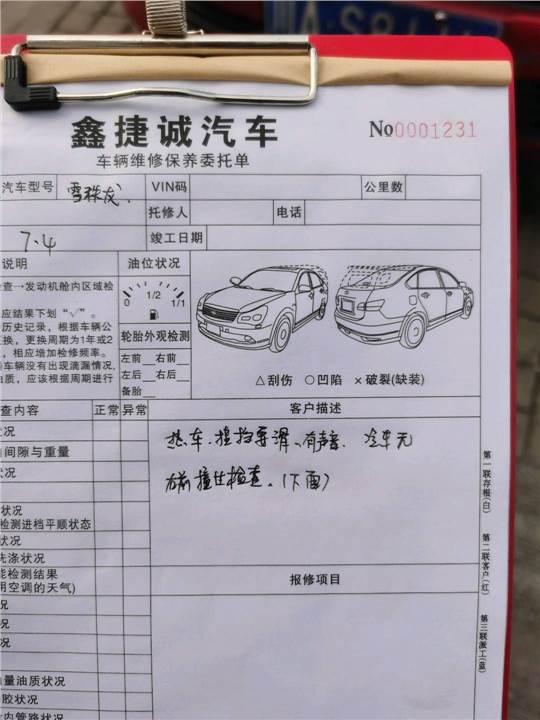 鑫捷诚汽车
No0001231
车辆维修保养委托单
汽车型号 雪铁龙 VIN码 公里数
托修人 电话
7.4 竣工日期
说明 油位状况
查→发动机舱内区域检
应结果下划“√”。
历史记录，根据车辆公
换，更换周期为1年或2
，相应增加检修频率。
车辆没有出现滴漏情况,
质，应该根据周期进行
0 1/2 1/1
轮胎外观检测
左前 右前
左后 右后
备胎
△刮伤 ○凹陷 ×破裂(缺装)
查内容 正常 异常 客户描述
热车、有声音、冷车无
右前撞仕检查。(下面)
状况
间隙与重量
状况
状况
检测进档平顺状态
状况
洗涤状况
能检测结果
用空调的天气)
况
况
况
量油质状况
胶状况
内管路状况
报修项目
第一联存根(白)
第二联客户(红)
第三联派工(蓝)